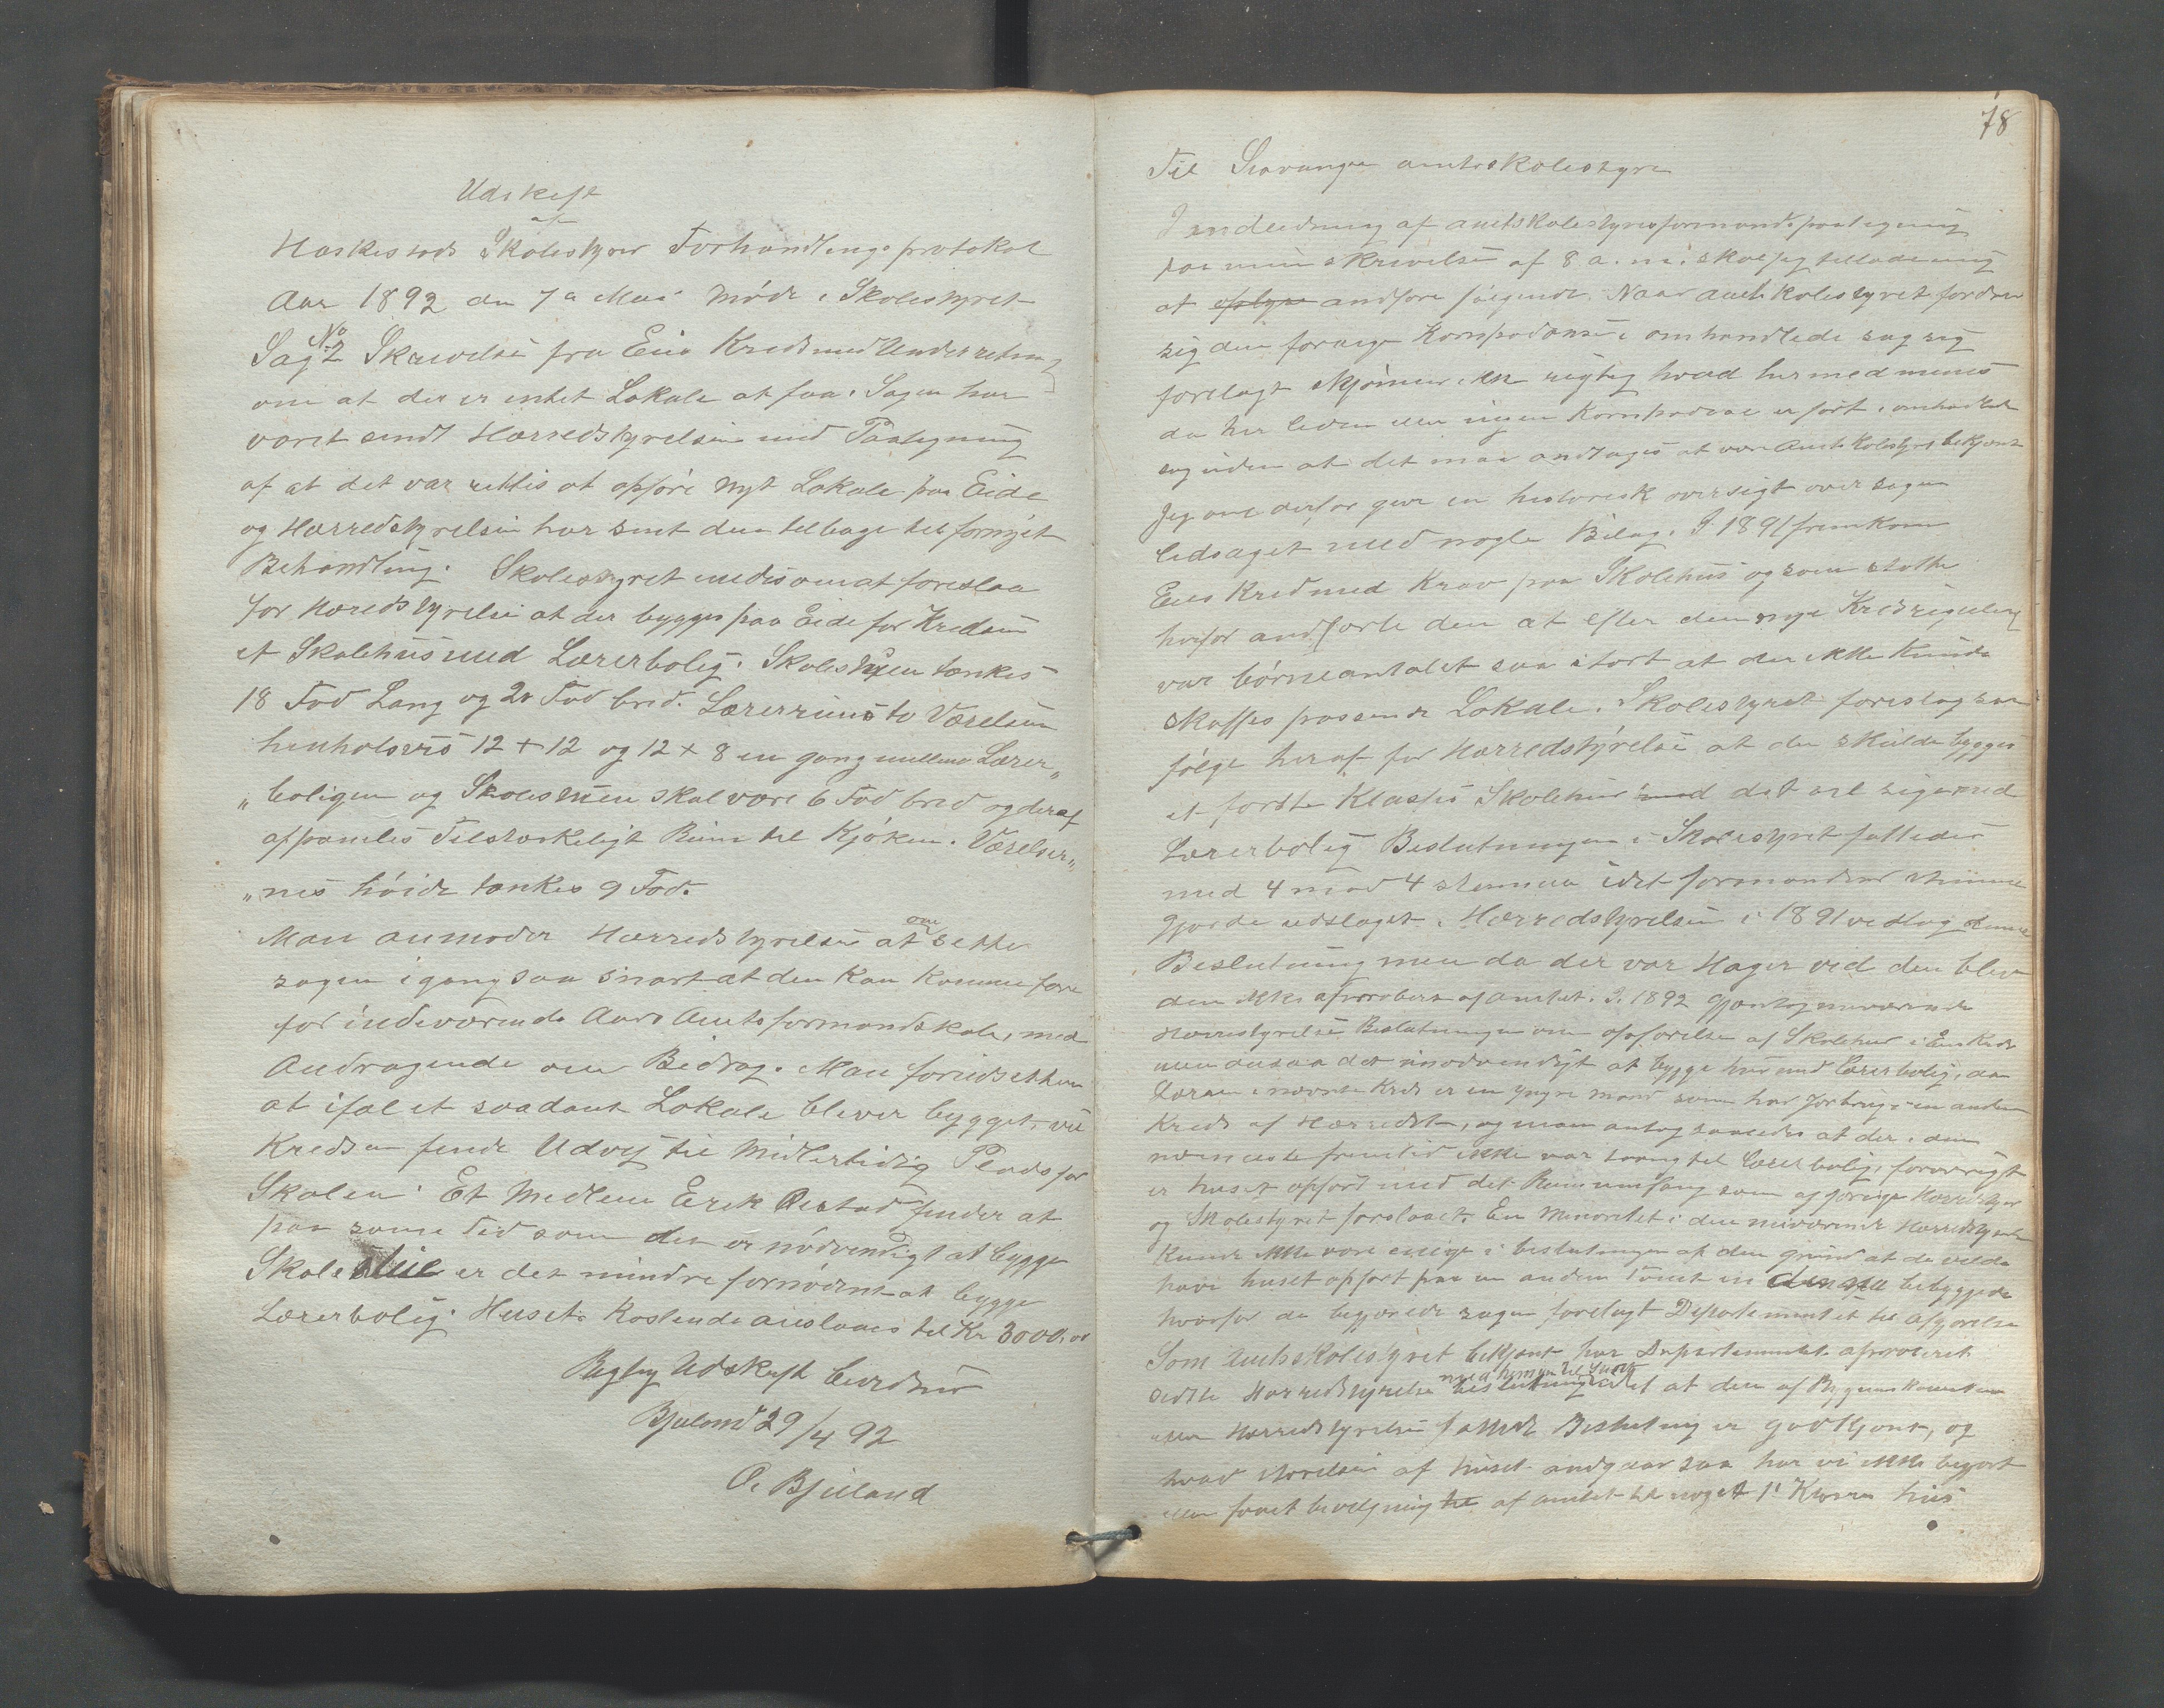 Udskrift
af
Heskestads Skolestyres Forhandlingsprotokol
Aar 1892 den 7de Mai Møde i Skolestyret
Sag No 2 Skrivelse fra Eies Kreds med Underretning
om at der er intet Lokale at faa. Sagen har
været sendt Herredstyrelsen med Paategning
af at det var rettes at opføre nyt Lokale paa Eide
og Herredstyrelsen har sent den tilbage til fornyet
Behandling. Skolestyret enedes om at foreslaa
for Heredstyrelse at der bygges paa Eide for Kredsen
et Skolehus med Lærerbolig. Skolestuen tænkes
18 Fod Lang og 20 Fod bred. Lærerrums to Værelser
henholsvis 12 + 12 og 12 + 8 en gang mellem Lærer„
„boligen og Skolestuen skal være 6 Fod bred og deraf
afpaneles Tilstrækkeligt Rum til Kjøken. Værelser„
„nes høide tænkes 9 Fod.
Man anmoder Herredstyrelsen at om sætte
sagen i gang saa snart at den kan komme fore
for indeværende Aars Amtsformandskab, med
Andragende om Bidrag. Man forudsetter
at ifal et saadant Lokale blever bygget, vil
Kredsen finde Udvej til Midlertidig Plads for
Skolen. Et Medlem Erik Restad finder at
paa samme Tid som det er nødvendigt at bygge
Skolestue er det mindre fornødent at bygge
Lærerbolig. Husets Kostende anslaaes til Kr 3000.00
Rigtig Udskrift bevidnes
Bjuland 29/4 92
O. Bjuland
78
Til Stavanger amtsskolestyre
I andledning af amtskolestyresformands paategning
paa min skrivelse af 8 a.m. skal jeg tillade mig
at oplyse andføre følgende. Naar amtskolestyret fordrer
sig den forrige Korspodanse i omhandlede sag sig
forelagt skjønner ikke rigtig hvad hermed menes
da her leven men ingen Korspodanse er ført i omhandlede
sag uden at det maa andtages at være Amtskolestyret bekjent
Jeg maa derfor give en historisk oversigt over sagen
ledsaget med nogle Bilag. I 1891 fremkom
Eies Kred med Krav paa Skolehus og som støtte
hvorfor andførte den at efter den nye Kredsregulering
var børneantalet saa stort at der ikke kunde
skaffes passende Lokale. Skolestyret foreslog som
følge heraf for Herredstyrelse at der skulde bygges
et første Klasses Skolehus med det vil sige med
Lærerbolig Beslutningen i Skolestyret fattedes
med 4 mod 4 stemmer idet formandens stemme
gjorde udslaget. Herredstyrelsen i 1891 vedtog denne
Beslutning men da der var Hager ved den blev
den ikke aproberet af amtet. I 1892 gjentog nuværende
Herredstyrelse Beslutningen om opførelse af Skolehus i Eies Kreds
men ansaa det unødvendigt at bygge hus med Lærerbolig, da
Læren i nævnte Kreds er en yngre mand som har Jordbrug i en anden
Kreds af Herredet, og man antog saaledes at der i den
nærmeste fremtid ikke var trang til Lærerbolig, forøvrigt
er huset opført med det Rumumfang som af forrige Herredstyre
og Skolestyret foreslaaet. En Minoritet i den nuværende Herredstyrelse
kunde ikke være enige i beslutningen af den grund at de vilde
have huset opført paa en anden Tomt en den nu bebyggede
hvorfor de begjærede sagen forelagt Departementet til Afgjørelse
Som Amtsskolestyret bekjent har Departementet aproberet
sidste Herredstyrelse beslutning idet at den af Bygnings Komiteen
men Herredstyrelse fattede Beslutning er godkjent, og
hvad størrelsen af huset andgaar saa har vi ikke begjært
men faaet bevilgning til af amtet til noget 1' Klasses hus